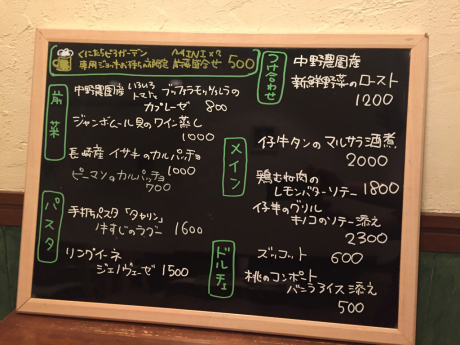 くにたちビアガーデン MINI×2
専用ジョッキお持ちの方限定 前菜盛合せ 500
前菜
中野農園産 いろいろトマト、ブッファラモッツァレラの
カプレーゼ 800
ジャンボムール貝のワイン蒸し
1000
長崎産 イサキのカルパッチョ
1000
ピーマンのカルパッチョ
700
パスタ
手打ちパスタ「タヤリン」
牛すじのラグー 1600
リングイーネ
ジェノヴェーゼ 1500
つけ合わせ
中野農園産
新鮮野菜のロースト
1200
メイン
仔牛タンのマルサラ酒煮
2000
鶏むね肉の
レモンバターソテー 1800
仔牛のグリル
キノコのソテー添え
2300
ドルチェ
ズッコット 600
桃のコンポート
バニラアイス添え
500